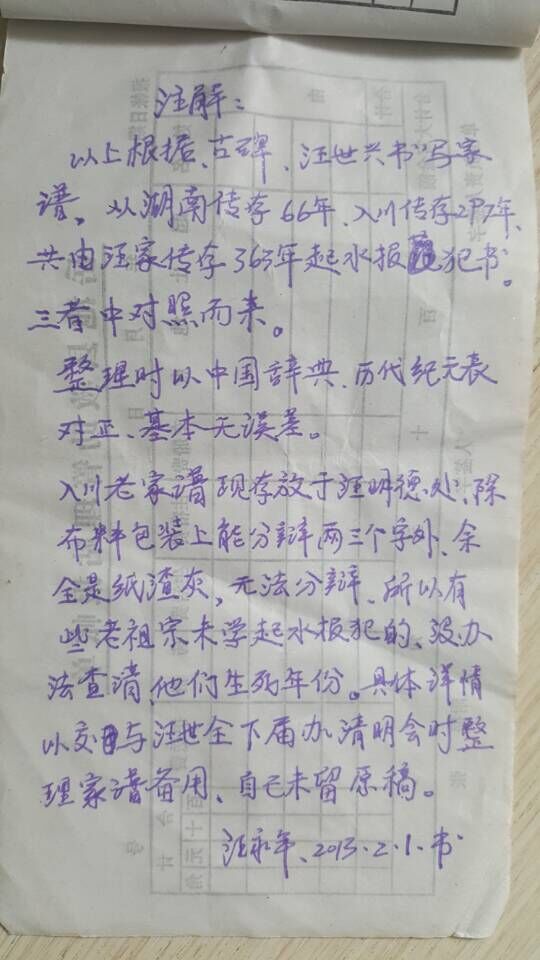 注解:
以上根据、古碑、汪世兴书写家
谱。从湖南传存66年、入川传存297年、
共由汪家传存363年起水报犯书。
三者中对照而来。
整理时以中国辞典、历代纪元表
对正、基本无误差。
入川老家谱现存放于汪明德处、除
布料包装上能分辩两三个字外、余
全是纸渣灰,无法分辩、所以有
些老祖宗未学起水报犯的、没办
法查清他们生死年份。具体详情
以交与汪世全下届办清明会时整
理家谱备用、自己未留原稿。
汪永年、2013.2.1.书